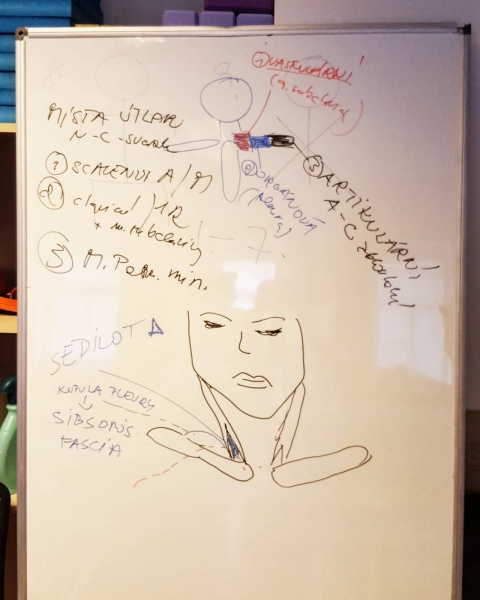 MÍSTA ÚTLAKU
N-C-svazk
① SCALENUS A/M
② clavicul / 1R
+ m. subclavius
③ M. Pect. min.
① VASKULÁRNÍ
(a. subclavia)
② ORGÁNOVÁ
(pleura)
③ ARTIKULÁRNÍ
A-C skloubení
SEDILOT Δ
KUPULA PLEURY
↓
SIBSON'S
FASCIA